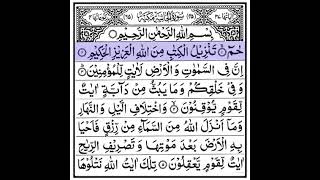 سُوْرَةُ الْجَاثِيَةِ مَكِّيَّةٌ
بِسْمِ اللّٰهِ الرَّحْمٰنِ الرَّحِيْمِ
حٰمٓ ۚ تَنْزِيْلُ الْكِتٰبِ مِنَ اللّٰهِ الْعَزِيْزِ الْحَكِيْمِ
اِنَّ فِى السَّمٰوٰتِ وَالْاَرْضِ لَاٰيٰتٍ لِّلْمُؤْمِنِيْنَ
وَفِىْ خَلْقِكُمْ وَمَا يَبُثُّ مِنْ دَآبَّةٍ اٰيٰتٌ
لِّقَوْمٍ يُّوْقِنُوْنَ وَاخْتِلَافِ الَّيْلِ وَالنَّهَارِ
وَمَآ اَنْزَلَ اللّٰهُ مِنَ السَّمَآءِ مِنْ رِّزْقٍ فَاَحْيَا
بِهِ الْاَرْضَ بَعْدَ مَوْتِهَا وَتَصْرِيْفِ الرِّيٰحِ
اٰيٰتٌ لِّقَوْمٍ يَّعْقِلُوْنَ تِلْكَ اٰيٰتُ اللّٰهِ نَتْلُوْهَا